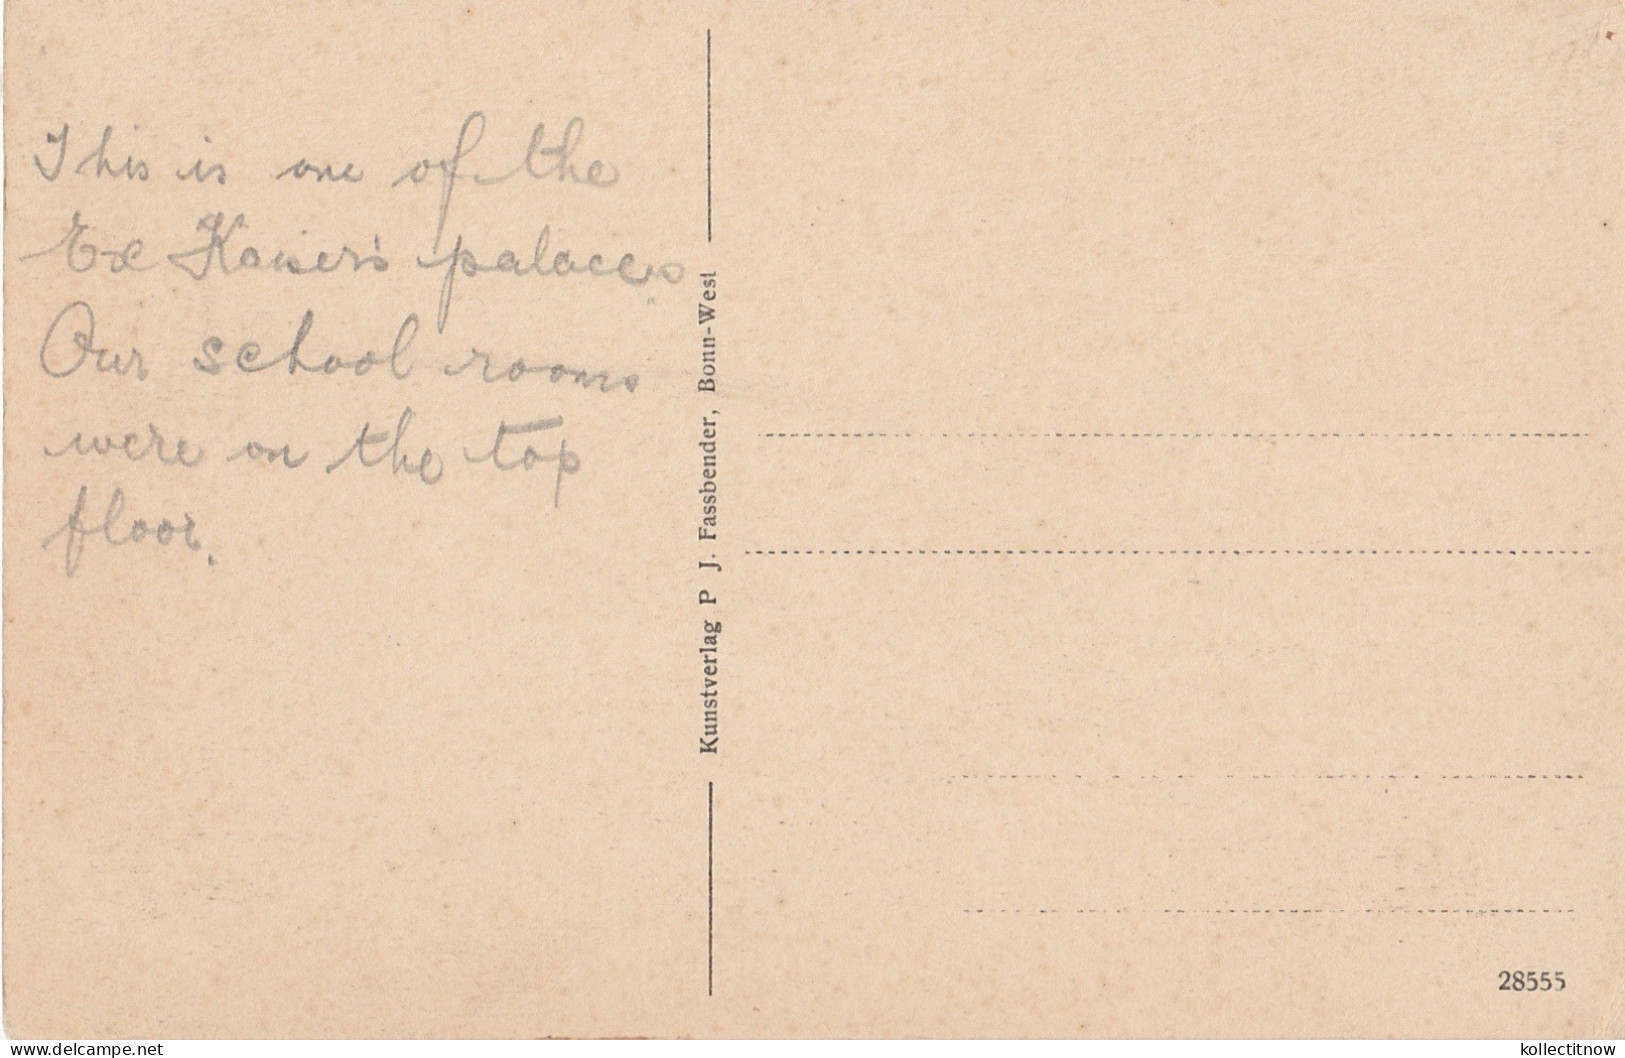 This is one of the
Ex Kaiser's palaces.
Our school rooms
were on the top
floor.
Kunstverlag P J. Fassbender, Bonn-West
28555
delcampe.net
kollectitnow